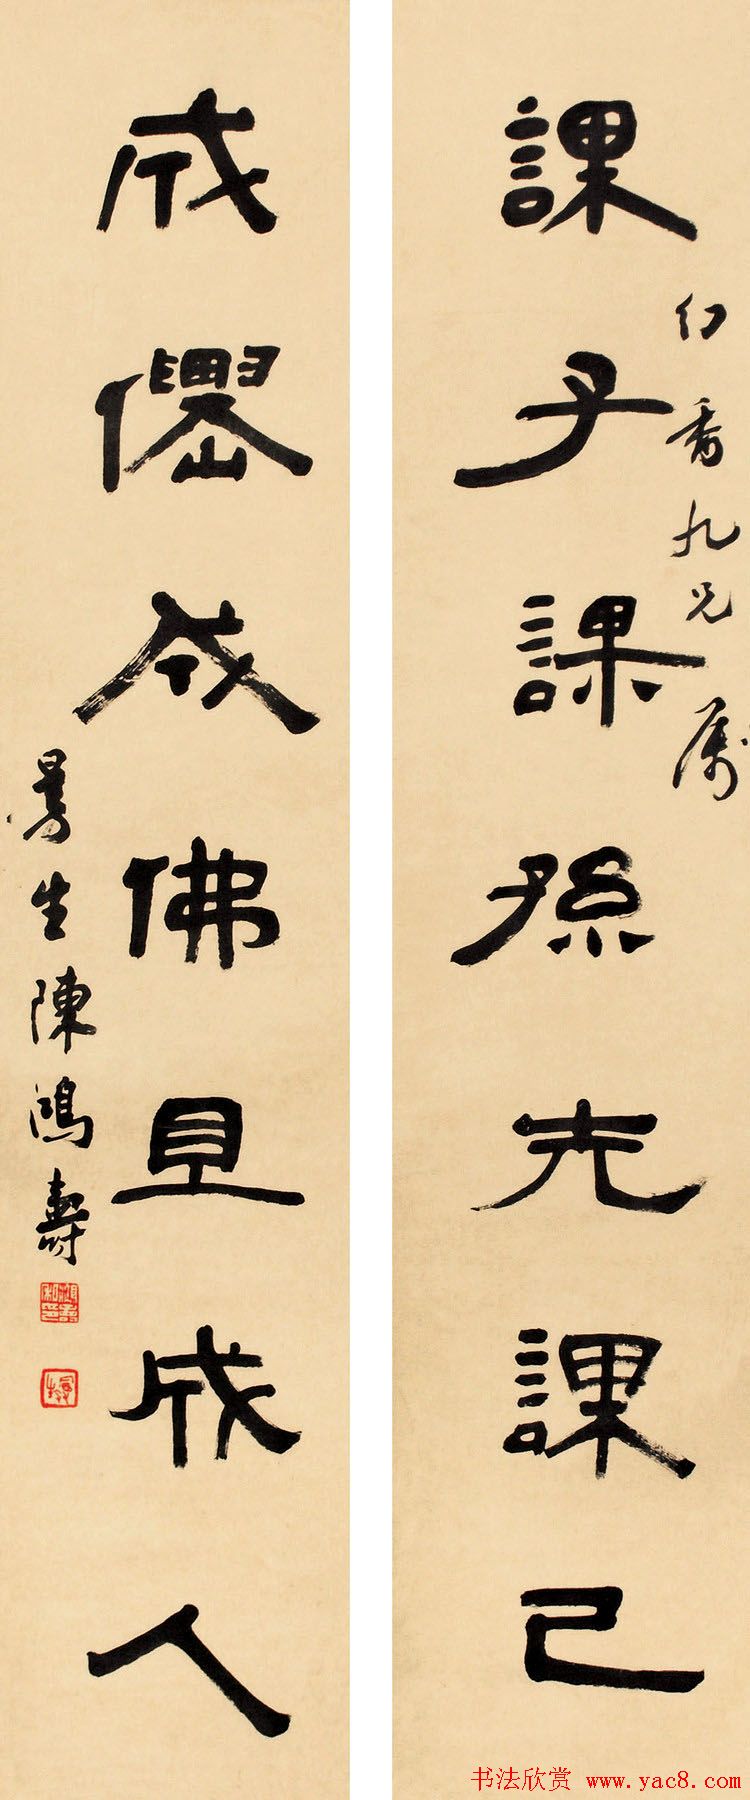 幻香九兄屬
課子課孫先課己
成僊成佛且成人
曼生陳鴻壽
书法欣赏 www.yac8.com